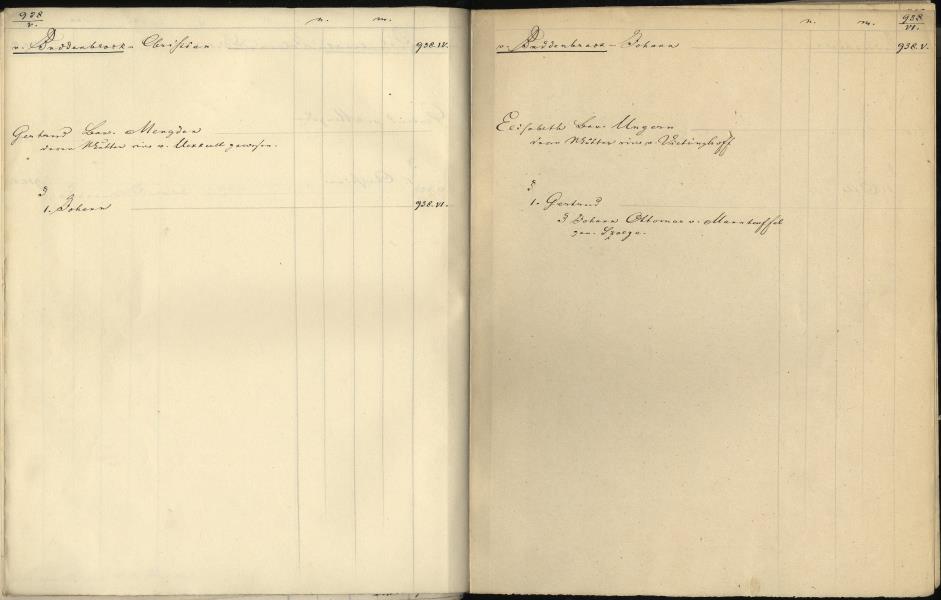 938
V.
n. m.
v. Buddenbrock - Christian 938.IV.
Gertrud Bar. Mengden
deren Mutter eine v. Uexkull gewesen.
3
1. Johann 938.VI.
n. m.
938
VI.
v. Buddenbrock - Johann 938.V.
Elisabeth Bar. Ungern
deren Mutter eine v. Vietinghoff
3
1. Gertrud
3 Johann Ottomar v. Manteuffel
gen. Szoege.